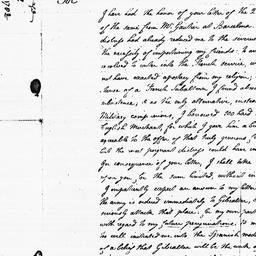 I have had the honor of your letter of the 2
of the same from Mr. Gautier at Barcelona.
distress had already reduced me to the severe
the necessity of importuning my friends: to av
resolved to enter into the French service, wh
not have exacted apostacy from my religion;
tence of a French Subaltern I found alrea
subsistance, & as the only alternative, instea
Military companions, I borrowed 200 hard
English Merchant, for which I gave him a bi
agreeable to the offer of that truly generous f
but the most poignant distress could have in
In consequence of your letter, I shall take
on you, for the sum limited, without in
I impatiently expect an answer to my letter
the army is ordered immediately to Gibraltar,
riously attack that place: for my own part
with regard to my future peregrinations. I
be well instructed into the Spanish mode
of a belief that Gibraltar will be the work